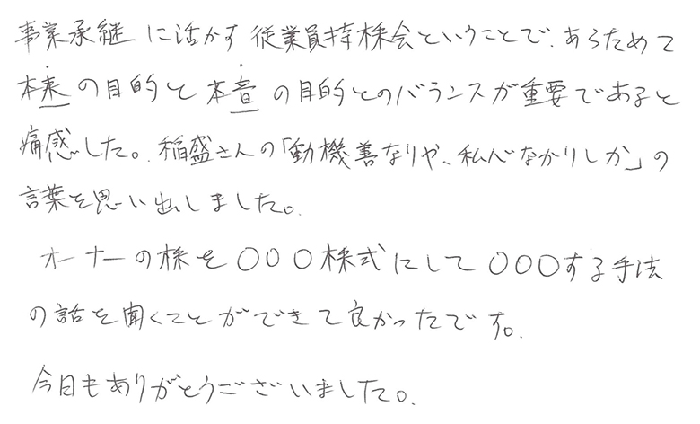 事業承継に活かす従業員持株会ということで、あらためて
本来の目的と本音の目的とのバランスが重要であると
痛感した。稲盛さんの「動機善なりや、私心なかりしか」の
言葉を思い出しました。
オーナーの株を〇〇〇株式にして〇〇〇する手法
の話を聞くことができて良かったです。
今日もありがとうございました。